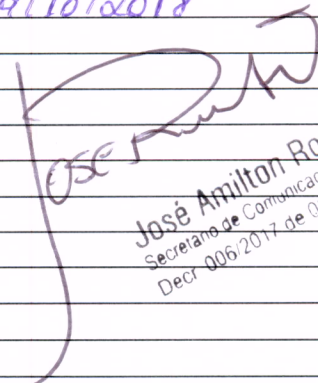 /10/2018
José
José Amilton Ro
Secretário de Comunicaç
Decr 006/2017 de 0